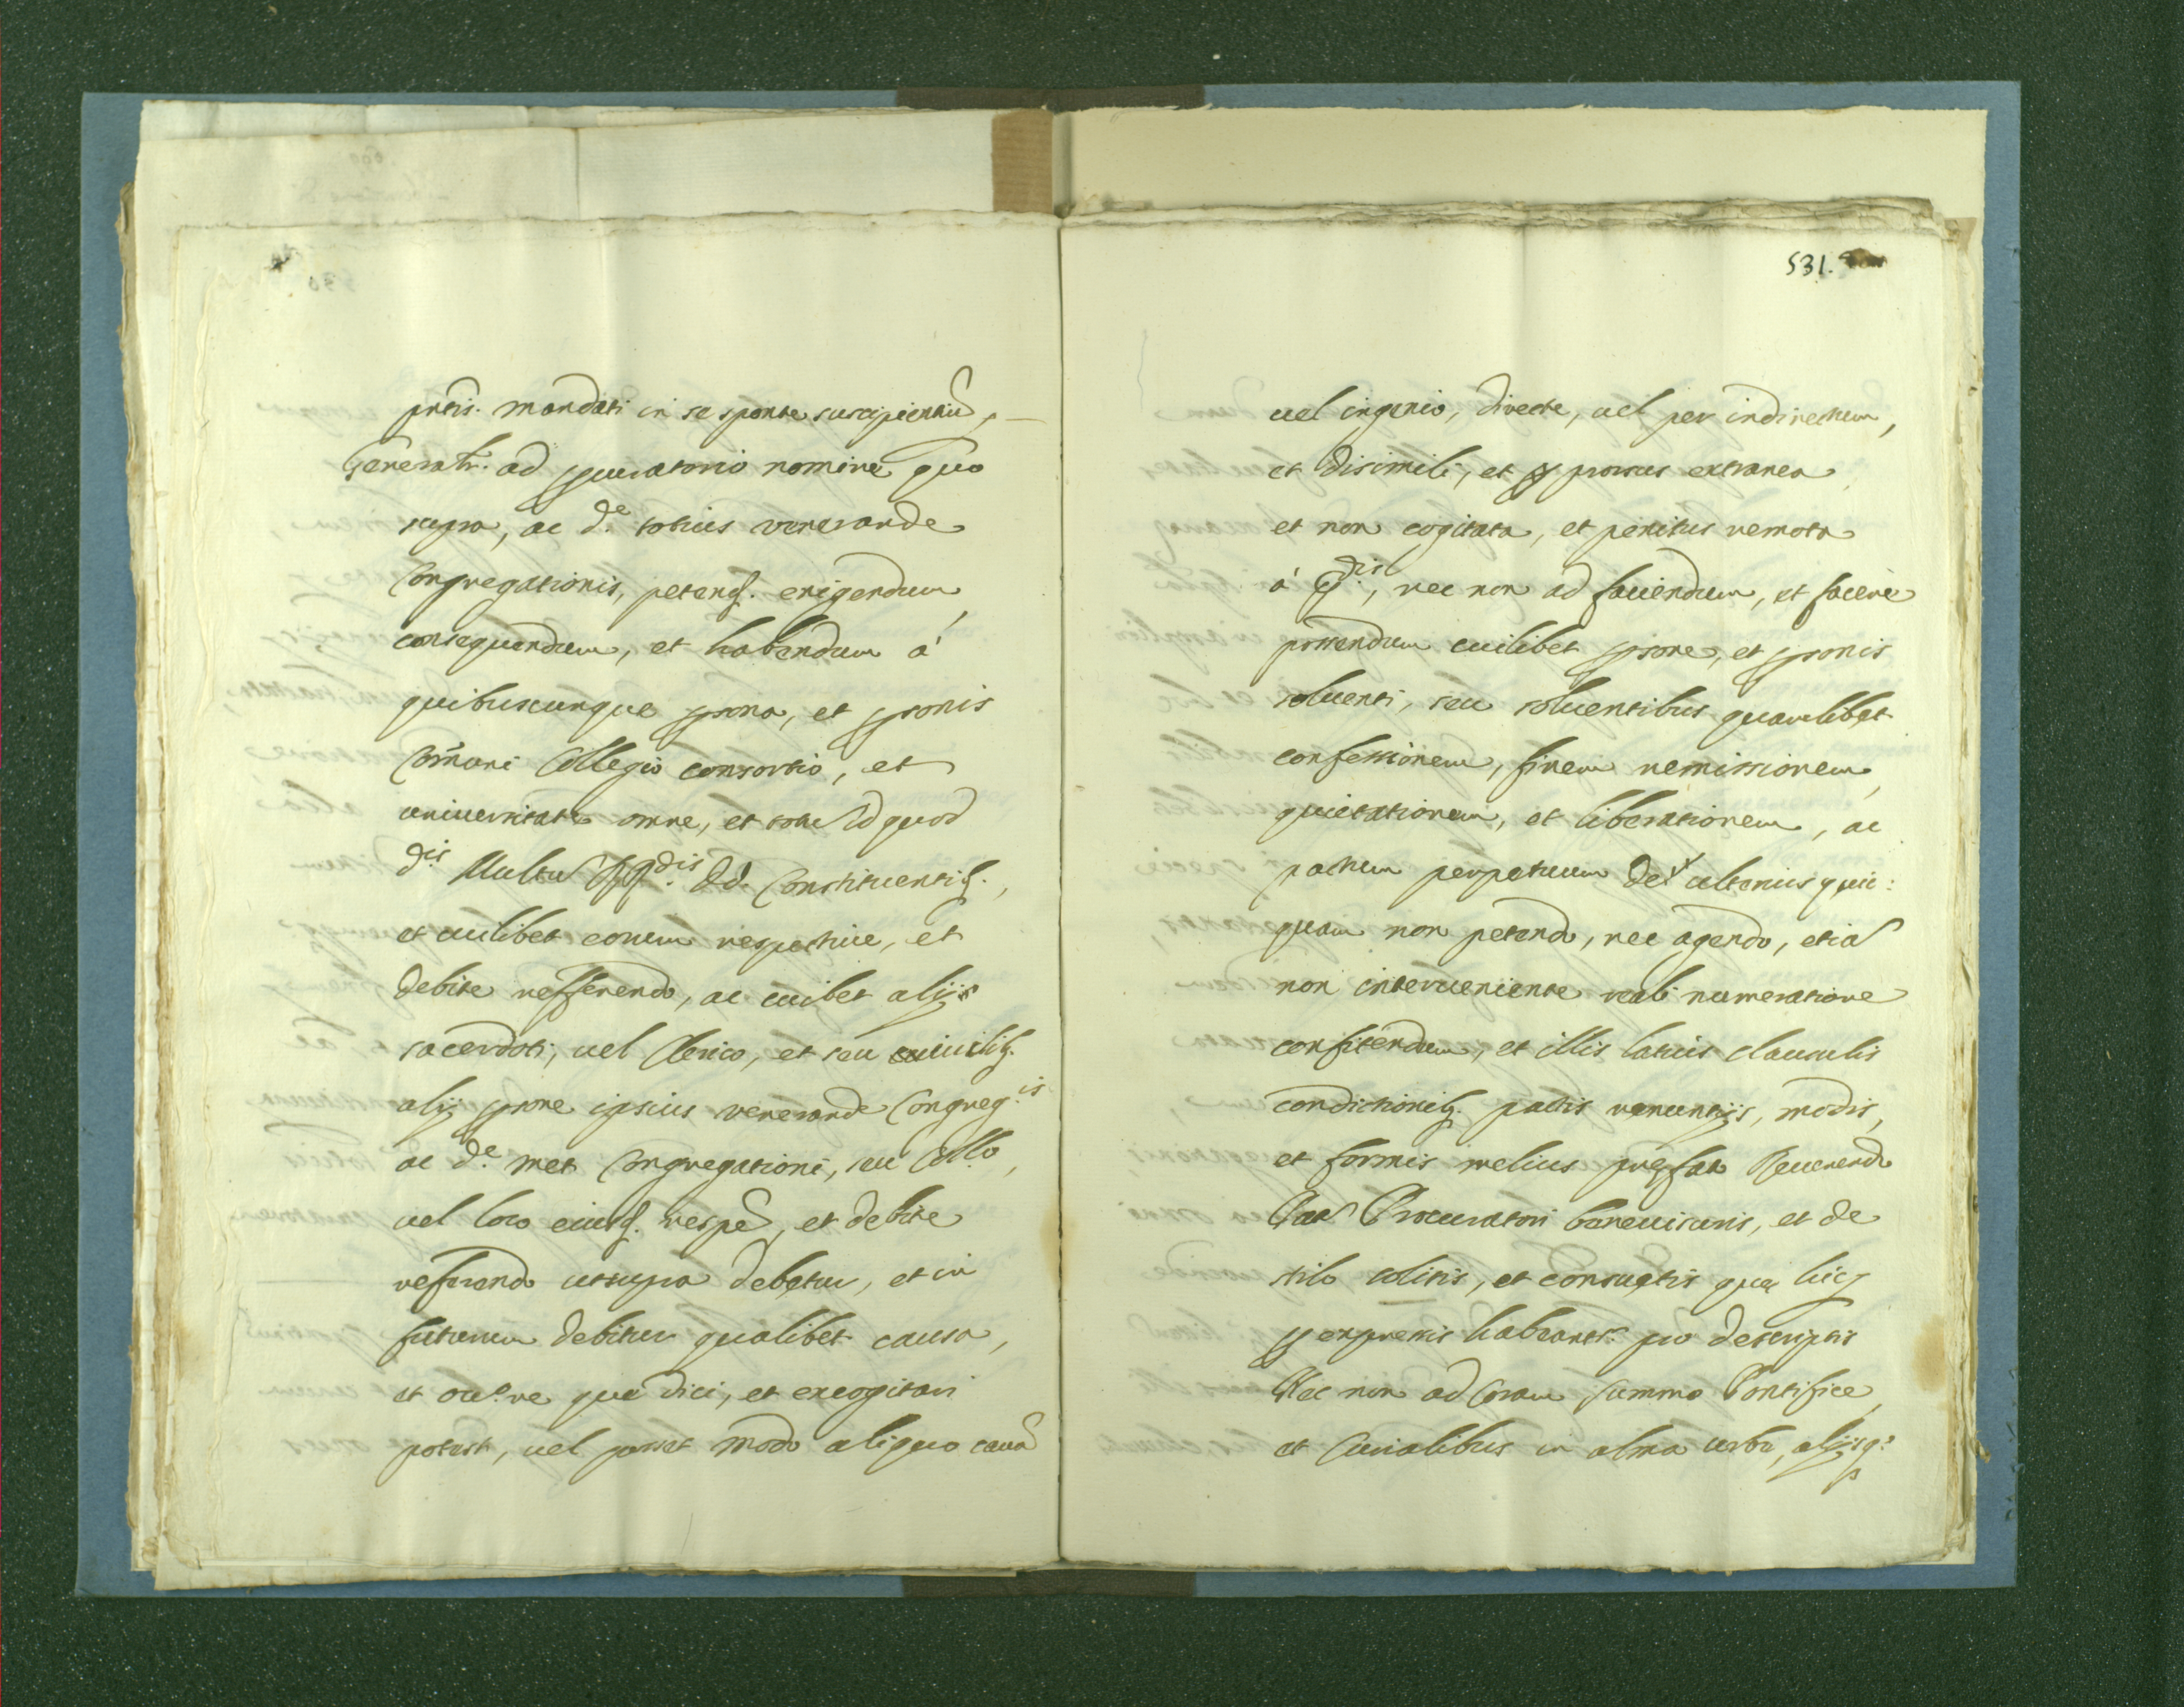 pntis. mandati in se sponte suscipientiũ,
Generatr. ad procuratorio nomine quo
supra, ac de. totius venerande
Congregationis, petend. exigendum,
consequendum, et habendum à
quibuscunque psona, et psonis
Comuni Collegio consortio, et
universitate omne, et totu id quod
dis. Multu RR dis. dd. Constituentib.,
et cuilibet eorum respective, et
debite refferendo, ac cuibet alijs
sacerdoti, vel Clerico, et seu
alij psone ipsius venerande Congreg.is
ac de. met Congregationi, seu Collo,
vel loco eiusd. respe, et debite
referendo ut supra debetur, et in
futurum debitur qualibet causa,
et que dici, et excogitari
potest, vel posset modo aliquo causa
531.
vel ingenio, directe, vel per indirectum,
et disimili, et prorsus extranea
et non cogitata, et penitus remota
à pdis., nec non ad faciendum, et facere
possendum cuilibet psone, et psonis
solventi, seu solventibus quamlibet
confessionem, finem remissionem,
quietationem, et liberationem, ac
pactum perpetuum de ulterius quic:
quam non petendo, nec agendo, etia
non interveniente reali numeratione
confitendum, et illis latius clausulis
condictionib. pactis renuntijs, modis,
et formis melius prefato Reverendo
Procuratori benevisuris, et de
stilo solitis, et consuetis que hic
p expressis habeantr. pro descriptis
Nec non ad Coram summo Pontifice,
et Curialibus in alma urbe, alijsq: